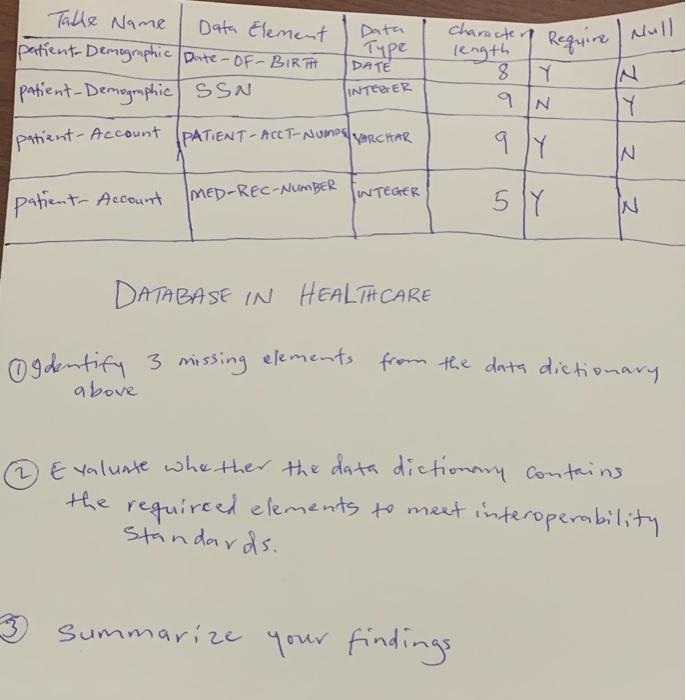 Table Name | Data Element | Data Type | Character length | Require | Null
patient-Demographic | Date-OF-BIRTH | DATE | 8 | Y | N
patient-Demographic | SSN | INTEGER | 9 | N | Y
patient-Account | PATIENT-ACCT- | VARCHAR | 9 | Y | N
patient-Account | MED-REC-NUMBER | INTEGER | 5 | Y | N
DATABASE IN HEALTHCARE
① Identify 3 missing elements from the data dictionary
above
② Evaluate whether the data dictionary contains
the required elements to meet interoperability
standards.
③ Summarize your findings